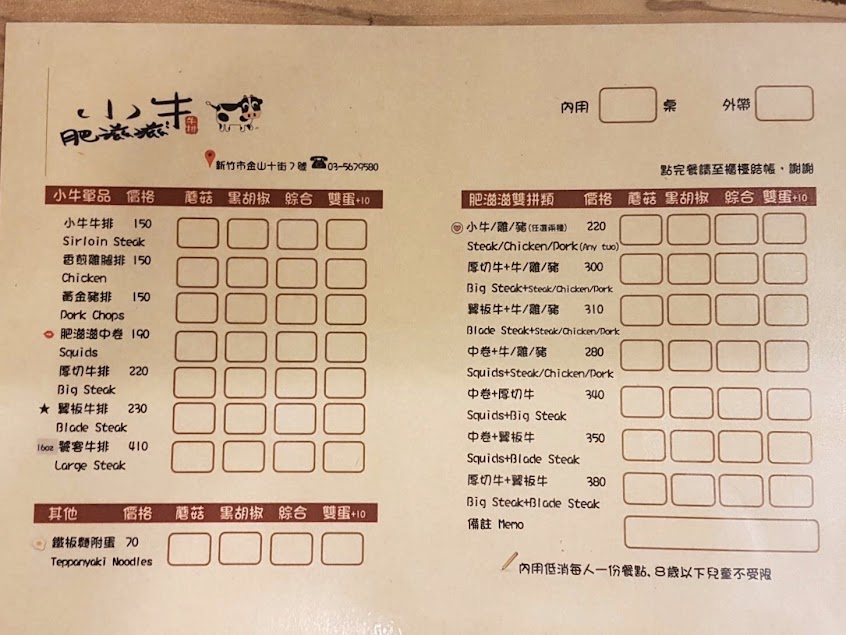 小牛
肥滋滋
牛排
新竹市金山十街7號 ☎03-5679580
內用 桌 外帶
點完餐請至櫃檯結帳,謝謝
小牛單品 價格 蘑菇 黑胡椒 綜合 雙蛋+10
小牛牛排 150
Sirloin Steak
香煎雞腿排 150
Chicken
黃金豬排 150
Pork Chops
肥滋滋中卷 190
Squids
厚切牛排 220
Big Steak
★ 翼板牛排 230
Blade Steak
16oz 饕客牛排 410
Large Steak
其他 價格 蘑菇 黑胡椒 綜合 雙蛋+10
鐵板麵附蛋 70
Teppanyaki Noodles
肥滋滋雙拼類 價格 蘑菇 黑胡椒 綜合 雙蛋+10
小牛/雞/豬(任選兩種) 220
Steak/Chicken/Pork(Any tuo)
厚切牛+牛/雞/豬 300
Big Steak+Steak/Chicken/Pork
翼板牛+牛/雞/豬 310
Blade Steak+Steak/Chicken/Pork
中卷+牛/雞/豬 280
Squids+Steak/Chicken/Pork
中卷+厚切牛 340
Squids+Big Steak
中卷+翼板牛 350
Squids+Blade Steak
厚切牛+翼板牛 380
Big Steak+Blade Steak
備註 Memo
內用低消每人一份餐點、8歲以下兒童不受限